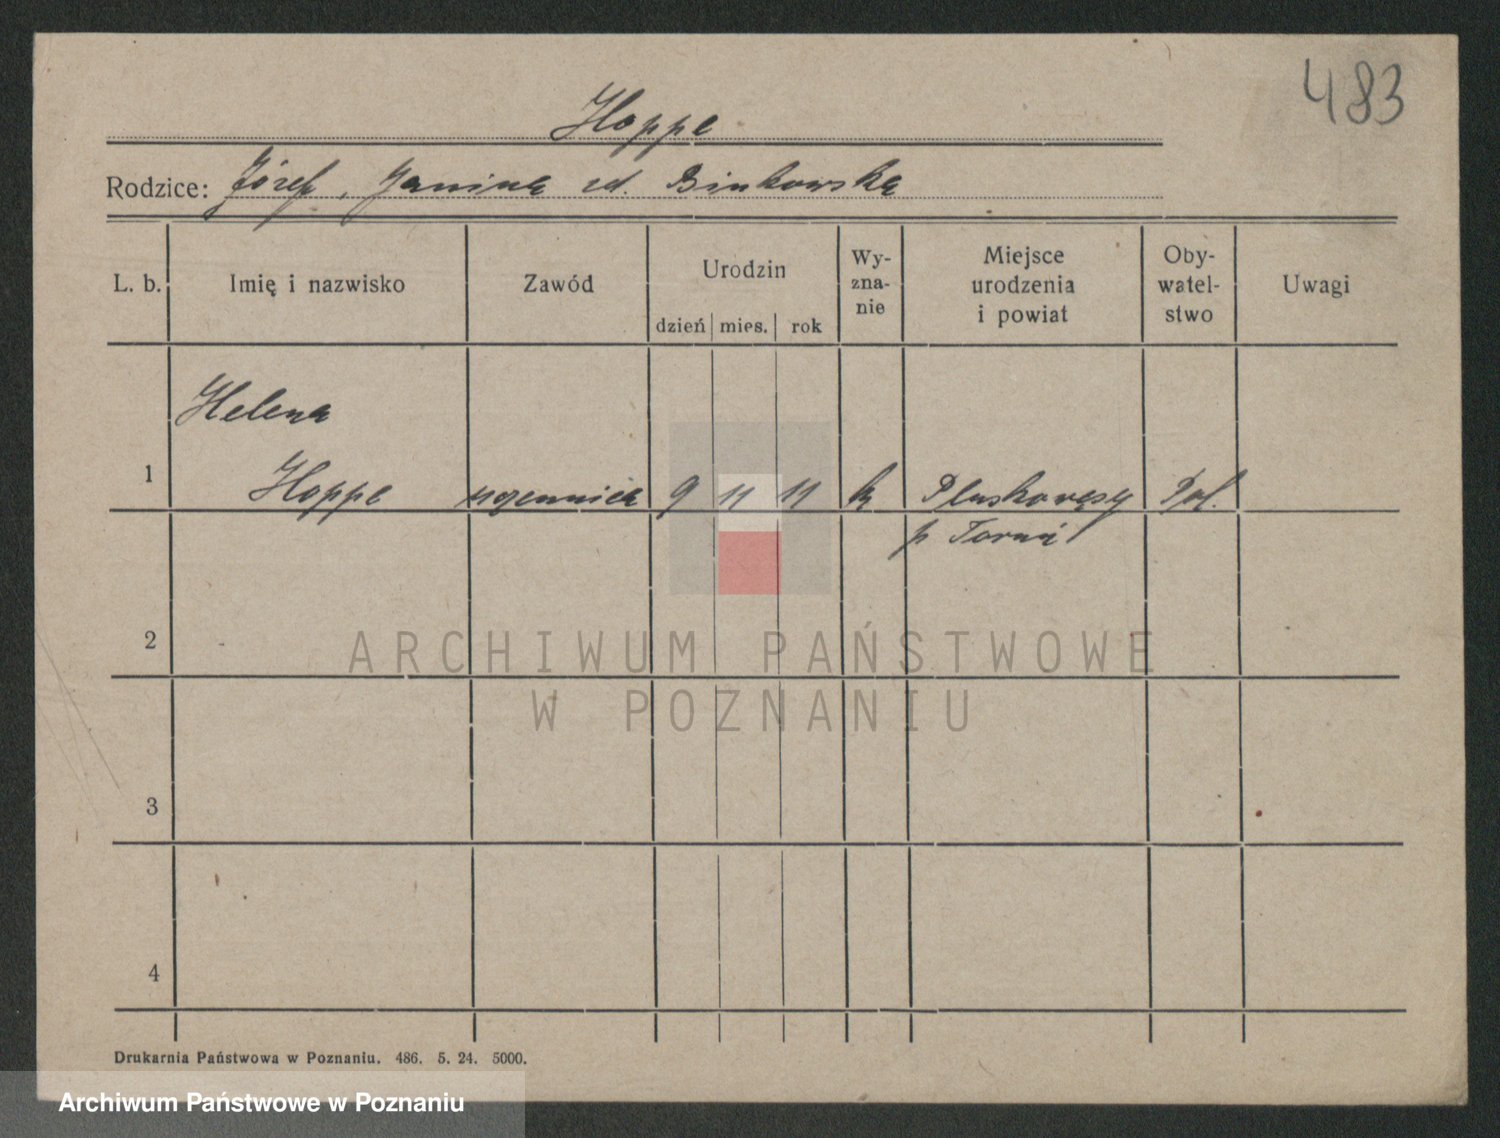 483
Hoppe
Rodzice: Józef, Janina zd. Binkowska
L. b. Imię i nazwisko Zawód Urodzin dzień mies. rok Wy-znanie Miejsce urodzenia i powiat Oby-watel-stwo Uwagi
Helena
1 Hoppe uczennica 9 11 11 k Pluskowęsy Pol.
p Toruń
2
ARCHIWUM PAŃSTWOWE
W POZNANIU
3
4
Drukarnia Państwowa w Poznaniu. 486. 5. 24. 5000.
Archiwum Państwowe w Poznaniu